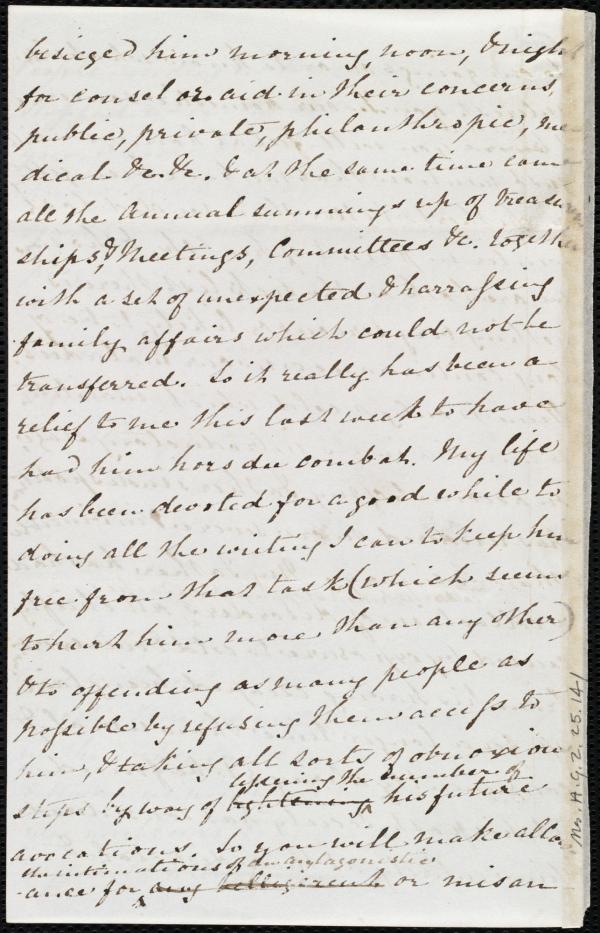 besieged him morning, noon, & night
for counsel or aid in their concerns,
public, private, philanthropic, me
dical &c. &c. & at the same time came
all the Annual summings up of treasur
ships, & Meetings, Committees &c. together
with a set of unexpected & harrassing
family affairs which could not be
transferred. So it really has been a
relief to me this last week to have
had him hors du combat. My life
has been devoted for a good while to
doing all the writing I can to keep him
free from that task (which seems
to hurt him more than any other)
& to offending as many people as
possible by refusing them access to
him, & taking all sorts of obnoxious
lessening the number of
steps by way of lightening his future
avocations. So you will make allow
the intonations of an antagonistic
-ance for any belligerent or misan
Ms. A. 9. 2. 25. 14